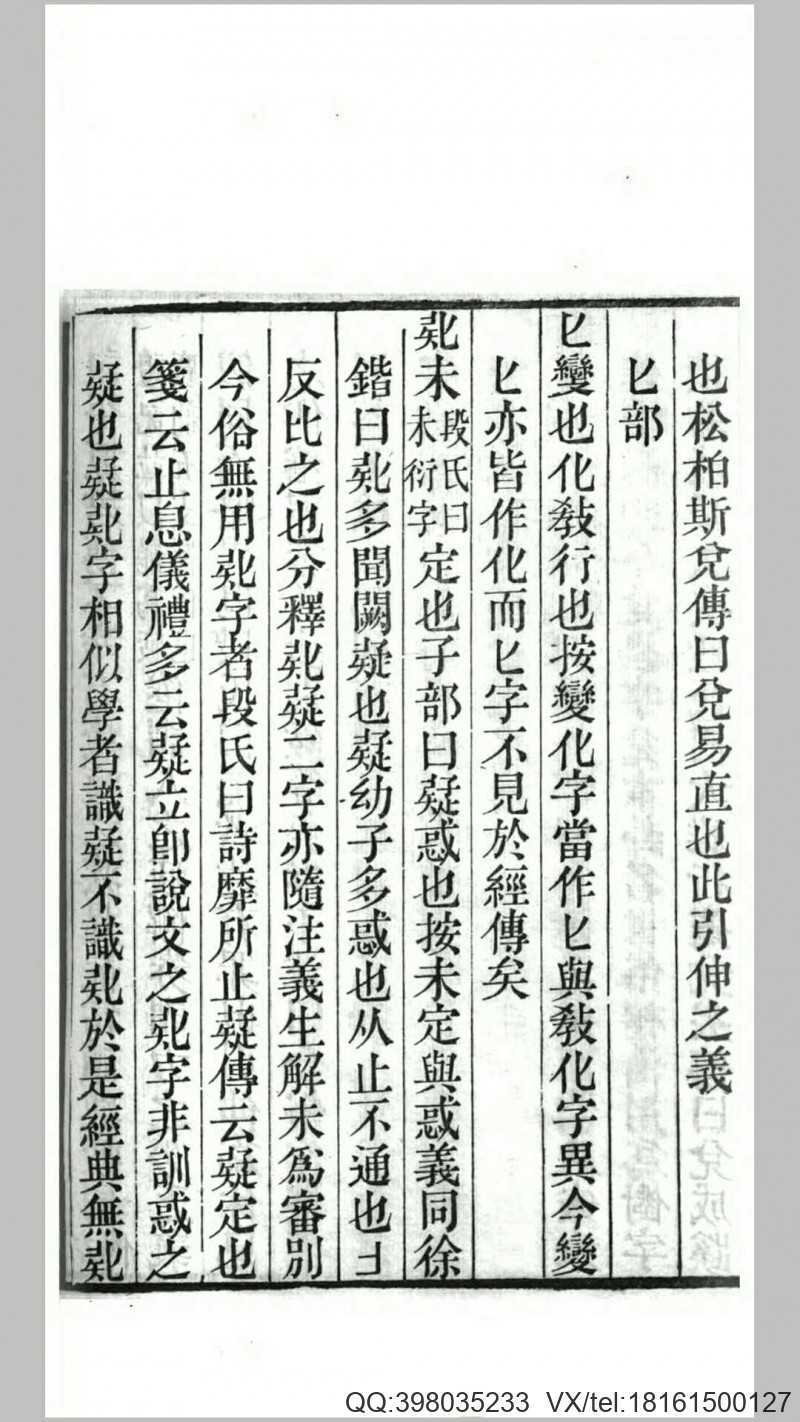 也松柏斯兌傳曰兌易直也此引伸之義
匕部
匕變也化敎行也按變化字當作匕與敎化字異今變
匕亦皆作化而匕字不見於經傳矣
𠤗未段氏曰未衍字定也子部曰疑惑也按未定與惑義同徐
鍇曰𠤗多聞闕疑也疑幼子多惑也从止不通也𠃑
反比之也分釋𠤗疑二字亦隨注義生解未爲審別
今俗無用𠤗字者段氏曰詩靡所止疑傳云疑定也
箋云止息儀禮多云疑立卽說文之𠤗字非訓惑之
疑也疑𠤗字相似學者識疑不識𠤗於是經典無𠤗
QQ:398035233 VX/tel:18161500127